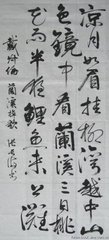 凉月如眉挂柳湾越中山
色镜中看蘭溪三日桃
花雨半夜鲤鱼来上灘
戴叔倫蘭溪棹歌